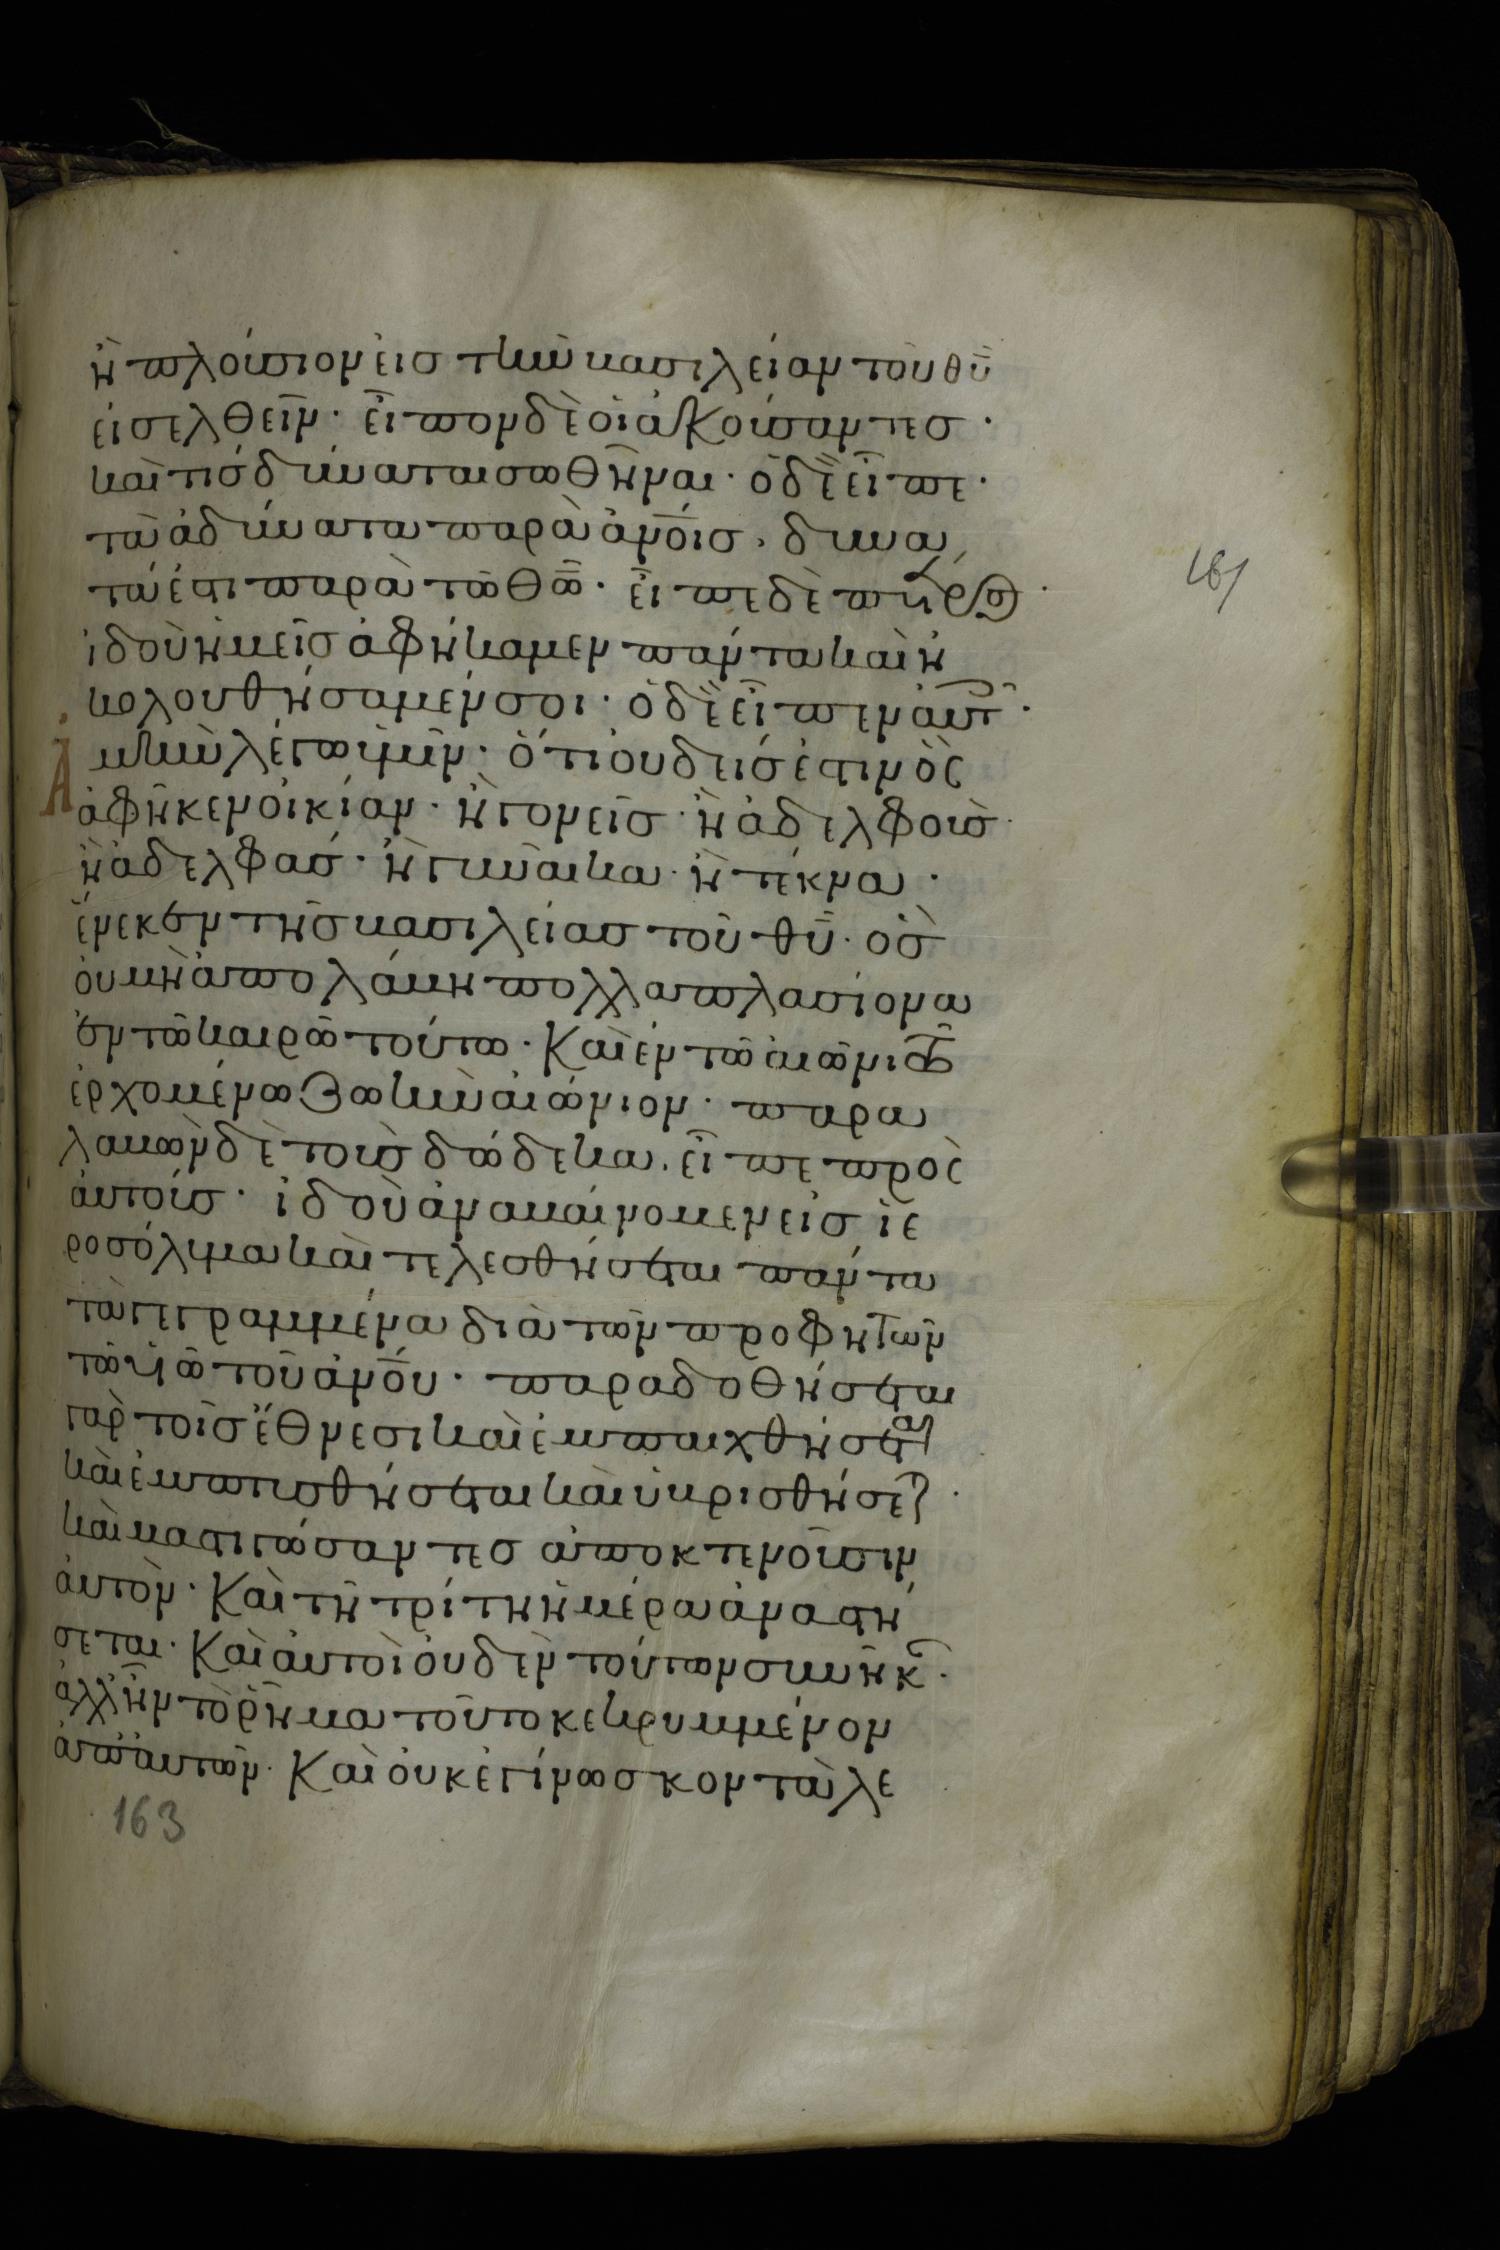 ἢ πλούσιον εἰς τὴν βασιλείαν τοῦ θῦ
εἰσελθεῖν· εἶπον δὲ οἱ ἀκούσαντες·
καὶ τίς δύναται σωθῆναι· ὁ δὲ εἶπε·
τὰ ἀδύνατα παρὰ ἀνοῖς, δυνα
τά ἐστι παρὰ τῶ θω· εἶπε δὲ πέτρος·
ἰδοὺ ἡμεῖς ἀφήκαμεν πάντα καὶ ἠ
κολουθήσαμέν σοι· ὁ δὲ εἶπεν αὐτοῖς·
Ἀμὴν λέγω ὑμῖν· ὅτι οὐδείς ἐστιν ὃς
ἀφῆκεν οἰκίαν· ἢ γονεῖς· ἢ ἀδελφοὺς·
ἢ ἀδελφάς· ἢ γυναῖκα· ἢ τέκνα·
ἕνεκεν τῆς βασιλείας τοῦ θῦ· ὃς
οὐ μὴ ἀπολάβη πολλαπλασίονα
ἐν τῶ καιρῶ τούτω· καὶ ἐν τῶ αἰῶνι τῶ
ἐρχομένω ζωὴν αἰώνιον· παρα
λαβὼν δὲ τοὺς δώδεκα, εἶπε πρὸς
αὐτούς· ἰδοὺ ἀναβαίνομεν εἰς ἱε
ροσόλυμα καὶ τελεσθήσεται πάντα
τὰ γεγραμμένα διὰ τῶν προφητῶν
τῶ υἱῶ τοῦ ἀνου· παραδοθήσεται
γὰρ τοῖς ἔθνεσι καὶ ἐμπαιχθήσεται
καὶ ἐμπτυσθήσεται καὶ ὑβρισθήσεται·
καὶ μαστιγώσαντες ἀποκτενοῦσιν
αὐτόν· καὶ τῆ τρίτη ἡμέρα ἀναστή
σεται· καὶ αὐτοὶ οὐδὲν τούτων συνῆκαν·
ἀλλ ἦν τὸ ῥῆμα τοῦτο κεκρυμμένον
ἀπ αὐτῶν· καὶ οὐκ ἐγίνωσκον τὰ λε
161
163